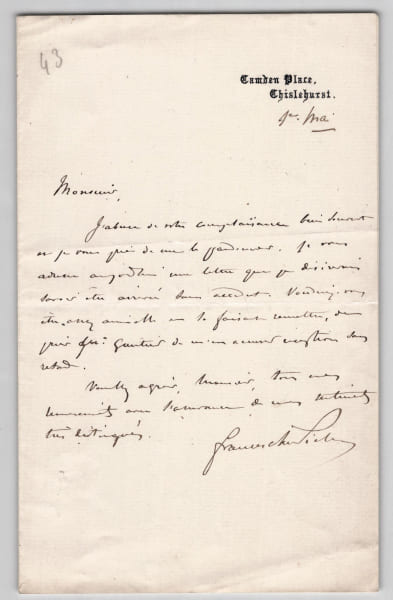 43
Camden Place,
Chislehurst.
1er Mai
Monsieur,
J'abuse de votre complaisance bien souvent
et je vous prie de me le pardonner. Je vous
adresse aujourd'hui une lettre que je désirerais
savoir être arrivée sans accident. Voudriez-vous
être assez aimable en la faisant remettre, de
prier Gautier de m'en accuser réception sans
retard.
Veuillez agréer, Monsieur, tous mes
remerciements avec l'assurance de mes sentiments
très distingués.
Franceschini Pietri